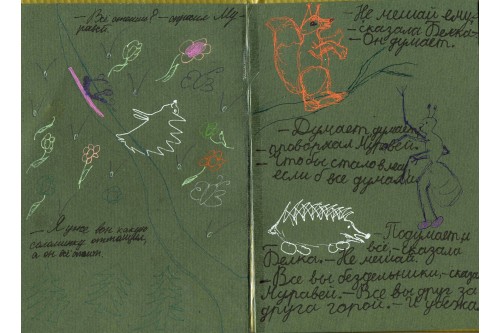 – Все стоит? – спросил Му-
равей.
– Я уже вон какую
соломинку оттащил,
а он всё стоит.
– Не мешай ему,
– сказала Белка. –
– Он думает.
– Думает, думает, –
проворчал Муравей. –
– Что бы стало в лесу
если б все думали.
– Подумает и
всё, – сказала
Белка. – Не мешай.
– Все вы бездельники, – сказа
Муравей. – Все вы друг за
друга горой. – И убежа